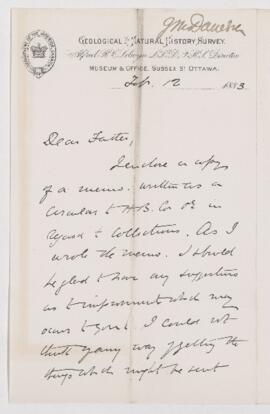 G M Dawson
GEOLOGICAL & NATURAL HISTORY SURVEY.
Alfred R. C. Selwyn LL.D., F.R.S., Director
MUSEUM & OFFICE, SUSSEX ST OTTAWA.
Feb. 12 1883.
Dear Father,
I enclose a copy
of a memo. written as a
circular to H.B. Co. Os in
regard to Collections. As I
wrote the memo. I should
be glad to have any suggestions
as to improvement which may
occur to you. I could not
think of any way of getting the
things which might be sent